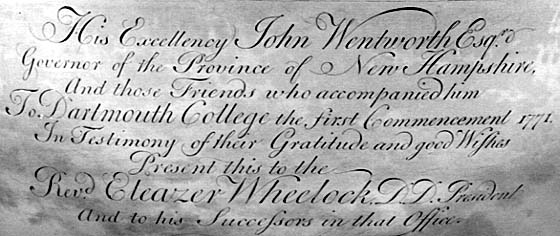 His Excellency John Wentworth Esqr.
Governor of the Province of New Hampshire,
And those Friends who accompanied him
To Dartmouth College the first Commencement 1771.
In Testimony of their Gratitude and good Wishes
Present this to the
Revd. Eleazer Wheelock, D.D. President
And to his Successors in that Office.